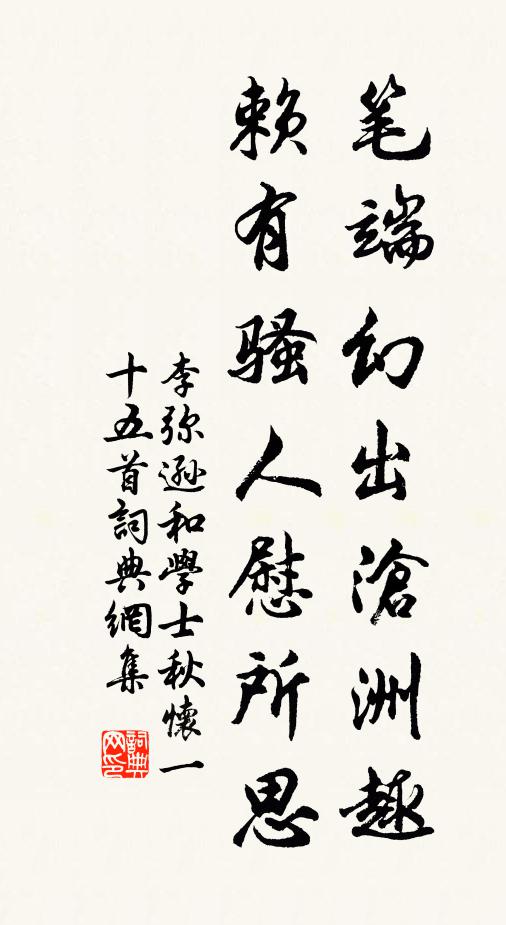 笔端幻出滄洲趣
賴有騷人慰所思
李弥遜和學士秋懷一
十五首詞典網集
詞典网印